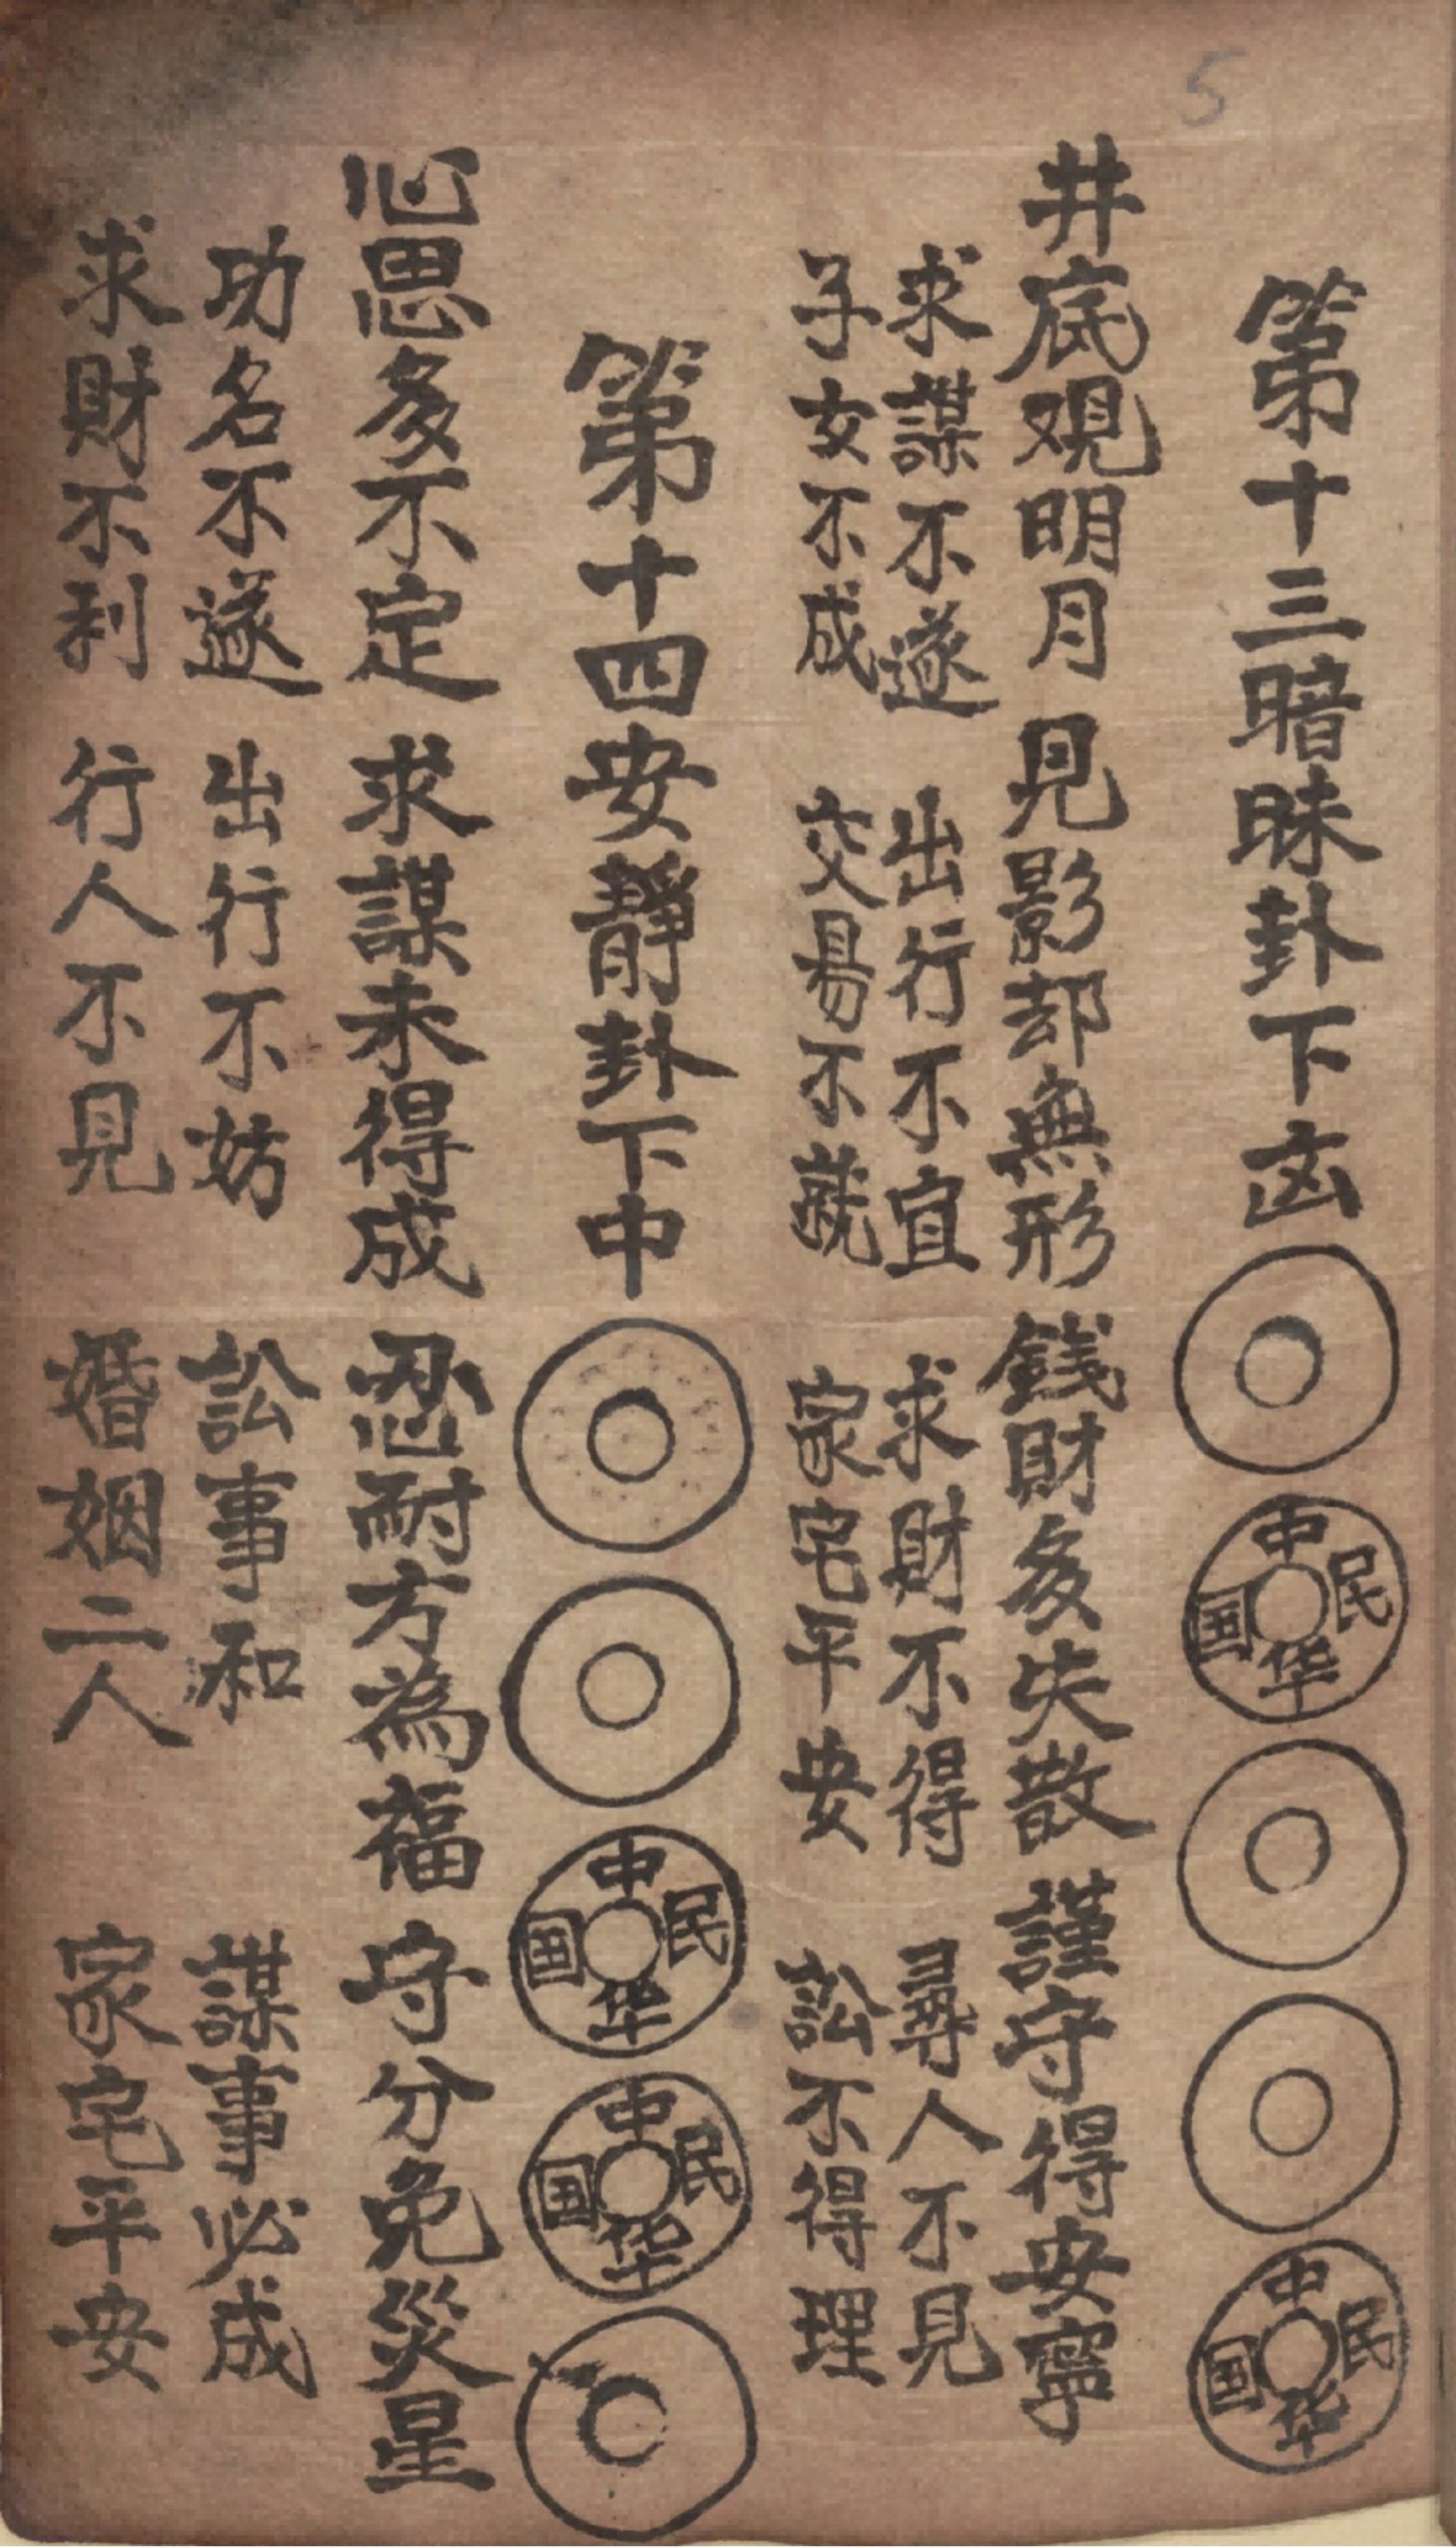 5
第十三暗昧卦下凶
中 民 国 华
中 民 国 华
井底观明月 見影却無形 錢財多失散 謹守得安寧
求謀不遂 出行不宜 求財不得 尋人不見
子女不成 交易不就 家宅平安 訟不得理
第十四安靜卦下中
中 民 国 华
中 民 国 华
心思多不定 求謀未得成 忍耐方為福 守分免災星
功名不遂 出行不妨 訟事和 謀事必成
求財不利 行人不見 婚姻二人 家宅平安